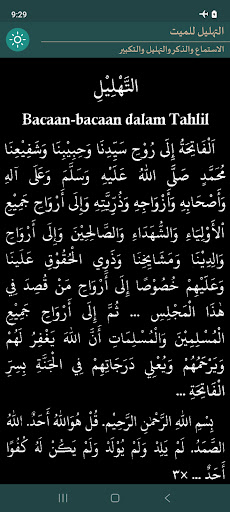 9:29
التهليل للميت
الاستماع والذكر والتهليل والتكبير
التَّهْلِيْلِ
Bacaan-bacaan dalam Tahlil
اَلْفَاتِحَةُ إِلَى رُوْحِ سَيِّدِنَا وَحَبِيْبِنَا وَشَفِيْعِنَا
مُحَمَّدٍ صَلَّى اللهُ عَلَيْهِ وَسَلَّمَ وَعَلَى آلِهِ
وَأَصْحَابِهِ وَأَزْوَاجِهِ وَذُرِّيَّتِهِ وَإِلَى أَرْوَاحِ جَمِيْعِ
الْأَوْلِيَاءِ وَالشُّهَدَاءِ وَالصَّالِحِيْنَ وَإِلَى أَرْوَاحِ
وَالِدِيْنَا وَمَشَايِخِنَا وَذَوِي الْحُقُوْقِ عَلَيْنَا
وَعَلَيْهِمْ خُصُوْصًا إِلَى أَرْوَاحِ مَنْ قُصِدَ فِي
هٰذَا الْمَجْلِسِ ... ثُمَّ إِلَى أَرْوَاحِ جَمِيْعِ
الْمُسْلِمِيْنَ وَالْمُسْلِمَاتِ أَنَّ اللهَ يَغْفِرُ لَهُمْ
وَيَرْحَمُهُمْ وَيُعْلِي دَرَجَاتِهِمْ فِي الْجَنَّةِ بِسِرِّ
الْفَاتِحَةِ ...
بِسْمِ اللهِ الرَّحْمٰنِ الرَّحِيْمِ. قُلْ هُوَ اللهُ أَحَدٌ. اللهُ
الصَّمَدُ. لَمْ يَلِدْ وَلَمْ يُوْلَدْ وَلَمْ يَكُنْ لَهُ كُفُوًا
أَحَدٌ ... ×٣